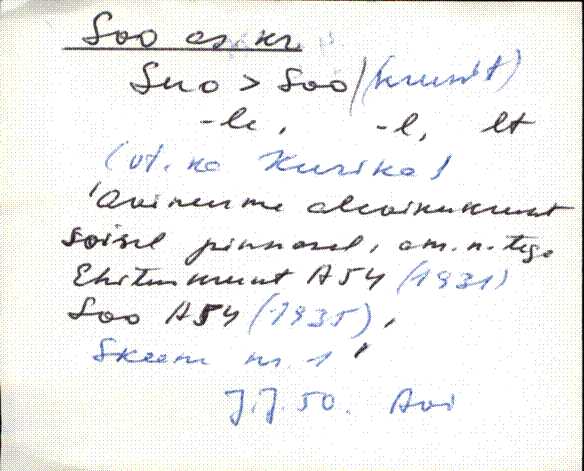 Soo as. kr.
Suo > Soo (krunt)
-le, -l, lt
(vt. ka Kuriko)
Avinurme alevikukrunt
soisel pinnasel, am. n. -tega
Ehituskrunt A54 (1931)
Soo A54 (1935),
Skeem nr. 1
J.J. 50. Avi